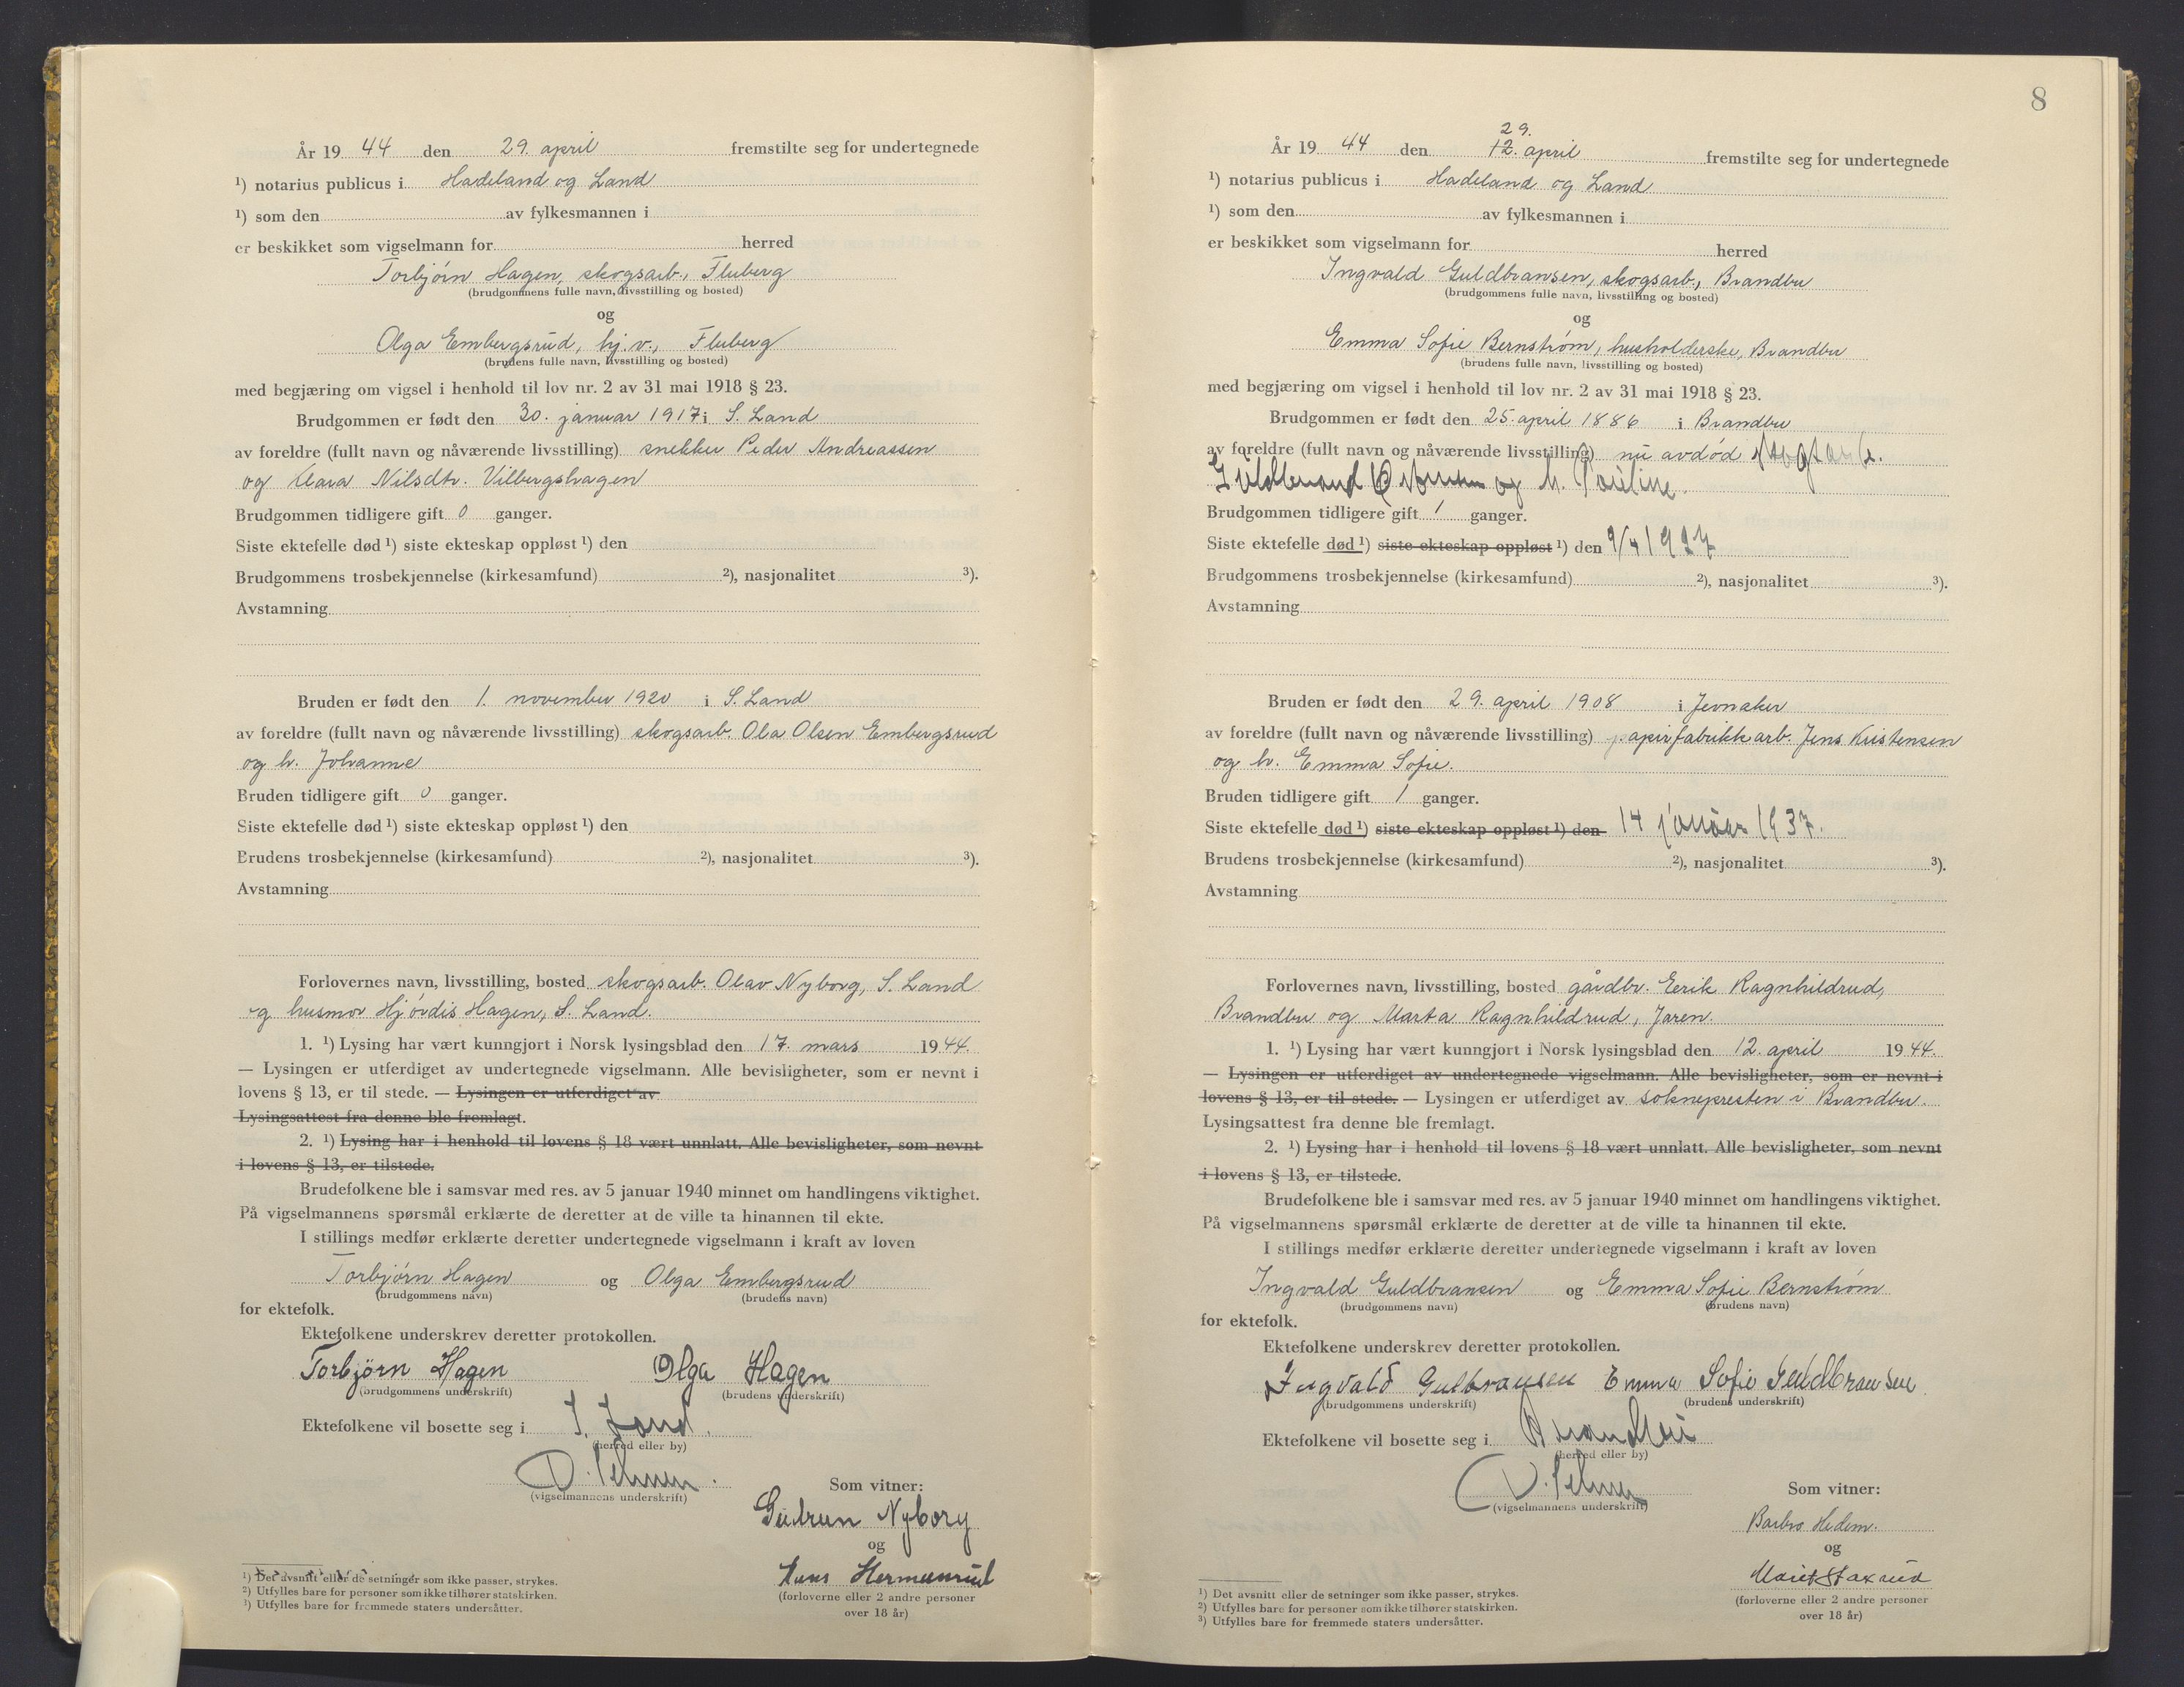 År 19 44 den 29. april fremstilte seg for undertegnede
¹) notarius publicus i Hadeland og Land
¹) som den av fylkesmannen i
er beskikket som vigselmann for herred
Torbjörn Hagen, skogsarb., Fluberg
(brudgommens fulle navn, livsstilling og bosted)
og
Olga Embergsrud, hj.v., Fluberg
(brudens fulle navn, livsstilling og bosted)
med begjæring om vigsel i henhold til lov nr. 2 av 31 mai 1918 § 23.
Brudgommen er født den 30. januar 1917 i S. Land
av foreldre (fullt navn og nåværende livsstilling) snekker Peder Andreassen
og Klara Nilsdtr. Vilbergshagen
Brudgommen tidligere gift 0 ganger.
Siste ektefelle død ¹) siste ekteskap oppløst ¹) den
Brudgommens trosbekjennelse (kirkesamfund) ²), nasjonalitet ³).
Avstamning
Bruden er født den 1. november 1920 i S. Land
av foreldre (fullt navn og nåværende livsstilling) skogsarb. Ola Olsen Embergsrud
og h. Johanne
Bruden tidligere gift 0 ganger.
Siste ektefelle død ¹) siste ekteskap oppløst ¹) den
Brudens trosbekjennelse (kirkesamfund) ²), nasjonalitet ³).
Avstamning
Forlovernes navn, livsstilling, bosted skogsarb. Olav Nyborg, S. Land
og husmor Hjördis Hagen, S. Land.
1. ¹) Lysing har vært kunngjort i Norsk lysingsblad den 17. mars 1944.
— Lysingen er utferdiget av undertegnede vigselmann. Alle bevisligheter, som er nevnt i
lovens § 13, er til stede. — Lysingen er utferdiget av
Lysingsattest fra denne ble fremlagt.
2. ¹) Lysing har i henhold til lovens § 18 vært unnlatt. Alle bevisligheter, som nevnt
i lovens § 13, er tilstede.
Brudefolkene ble i samsvar med res. av 5 januar 1940 minnet om handlingens viktighet.
På vigselmannens spørsmål erklærte de deretter at de ville ta hinannen til ekte.
I stillings medfør erklærte deretter undertegnede vigselmann i kraft av loven
Torbjörn Hagen og Olga Embergsrud
(brudgommens navn) (brudens navn)
for ektefolk.
Ektefolkene underskrev deretter protokollen.
Torbjörn Hagen Olga Hagen
(brudgommens underskrift) (brudens underskrift)
Ektefolkene vil bosette seg i S. Land.
(herred eller by)
(vigselmannens underskrift) Som vitner:
Gudrun Nyborg
og
Hans Hermunsrud
(forloverne eller 2 andre personer
over 18 år)
¹) Det avsnitt eller de setninger som ikke passer, strykes.
²) Utfylles bare for personer som ikke tilhører statskirken.
³) Utfylles bare for fremmede staters undersåtter.
8
29.
År 19 44 den 12. april fremstilte seg for undertegnede
¹) notarius publicus i Hadeland og Land
¹) som den av fylkesmannen i
er beskikket som vigselmann for herred
Ingvald Guldbransen, skogsarb., Brandbu
(brudgommens fulle navn, livsstilling og bosted)
og
Emma Sofie Bernstrøm, husholderske, Brandbu
(brudens fulle navn, livsstilling og bosted)
med begjæring om vigsel i henhold til lov nr. 2 av 31 mai 1918 § 23.
Brudgommen er født den 25. april 1886 i Brandbu
av foreldre (fullt navn og nåværende livsstilling) nu avdød skogsarb.
Guldbrand og h. Pauline.
Brudgommen tidligere gift 1 ganger.
Siste ektefelle død ¹) siste ekteskap oppløst ¹) den 9/4 1927
Brudgommens trosbekjennelse (kirkesamfund) ²), nasjonalitet ³).
Avstamning
Bruden er født den 29. april 1908 i Jevnaker
av foreldre (fullt navn og nåværende livsstilling) papirfabrikkarb. Jens Kristensen
og h. Emma Sofie.
Bruden tidligere gift 1 ganger.
Siste ektefelle død ¹) siste ekteskap oppløst ¹) den 14 januar 1937.
Brudens trosbekjennelse (kirkesamfund) ²), nasjonalitet ³).
Avstamning
Forlovernes navn, livsstilling, bosted gårdbr. Eerik Ragnhildrud,
Brandbu og Marta Ragnhildrud, Jaren.
1. ¹) Lysing har vært kunngjort i Norsk lysingsblad den 12. april 1944.
— Lysingen er utferdiget av undertegnede vigselmann. Alle bevisligheter, som er nevnt i
lovens § 13, er til stede. — Lysingen er utferdiget av soknepresten i Brandbu.
Lysingsattest fra denne ble fremlagt.
2. ¹) Lysing har i henhold til lovens § 18 vært unnlatt. Alle bevisligheter, som nevnt
i lovens § 13, er tilstede.
Brudefolkene ble i samsvar med res. av 5 januar 1940 minnet om handlingens viktighet.
På vigselmannens spørsmål erklærte de deretter at de ville ta hinannen til ekte.
I stillings medfør erklærte deretter undertegnede vigselmann i kraft av loven
Ingvald Guldbransen og Emma Sofie Bernstrøm
(brudgommens navn) (brudens navn)
for ektefolk.
Ektefolkene underskrev deretter protokollen.
Ingvald Gulbransen Emma Sofie Guldbransen
(brudgommens underskrift) (brudens underskrift)
Ektefolkene vil bosette seg i Brandbu
(herred eller by)
(vigselmannens underskrift) Som vitner:
Barbro Hedem.
og
Marit Staxrud
(forloverne eller 2 andre personer
over 18 år)
¹) Det avsnitt eller de setninger som ikke passer, strykes.
²) Utfylles bare for personer som ikke tilhører statskirken.
³) Utfylles bare for fremmede staters undersåtter.